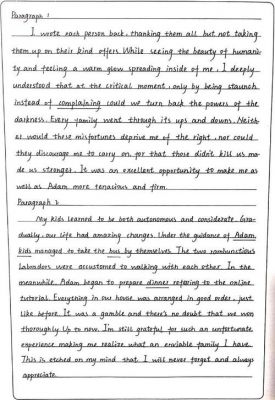 Paragraph 1
I wrote each person back, thanking them all but not taking
them up on their kind offers. While seeing the beauty of humani-
ty and feeling a warm glow spreading inside of me, I deeply
understood that at the critical moment, only by being staunch
instead of complaining could we turn back the powers of the
darkness. Every family went through its ups and downs. Neith-
er would these misfortunes deprive me of the right, nor could
they discourage me to carry on, for that those didn't kill us ma-
de us stronger. It was an excellent opportunity to make me as
well as Adam more tenacious and firm.
Paragraph 2
My kids learned to be both autonomous and considerate. Gra-
dually, our life had amazing changes. Under the guidance of Adam,
kids managed to take the bus by themselves. The two rambunctious
Labradors were accustomed to walking with each other. In the
meanwhile, Adam began to prepare dinner refering to the online
tutorial. Everything in our house was arranged in good order, just
like before. It was a gamble and there's no doubt that we won
thoroughly. Up to now, I'm still grateful for such an unfortunate
experience making me realize what an enviable family I have.
This is etched on my mind that I will never forget and always
appreciate.